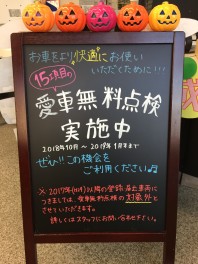 お車をより快適にお使い
いただくために…
15項目の
愛車無料点検
実施中
2018年10月〜2019年1月末まで
ぜひ!!この機会を
ご利用ください♫
※2017年(H29)以降の登録・届出車両に
つきましては、愛車無料点検の対象外と
させていただきます。
詳しくはスタッフにお問い合わせ下さい。